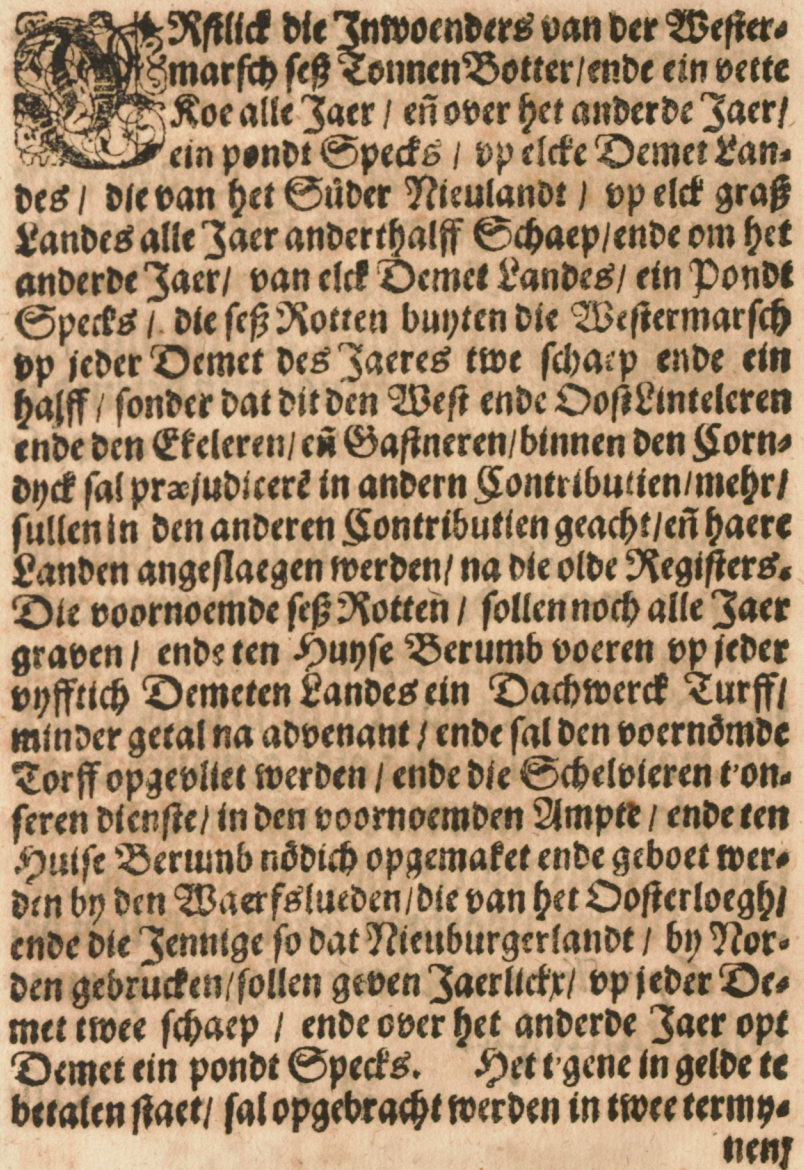 ERstlick die Inwoenders van der Wester-
marsch seß Tonnen Botter/ende ein vette
Koe alle Jaer / eñ over het anderde Jaer/
ein pondt Specks / vp elcke Demet Lan-
des / die van het Süder Nieulandt / vp elck graß
Landes alle Jaer anderthalff Schaep/ende om het
anderde Jaer/ van elck Demet Landes/ ein Pondt
Specks /. die seß Rotten buyten die Westermarsch
vp jeder Demet des Jaeres twe schaep ende ein
halff / sonder dat dit den West ende Oost Linteleren
ende den Ekeleren/eñ Gastneren/binnen den Corn-
dyck sal præjudicerẽ in andern Contributien/mehr/
sullen in den anderen Contributien geacht/eñ haere
Landen angeslaegen werden/ na die olde Registers.
Die voornoemde seß Rotten / sollen noch alle Jaer
graven / ende ten Huyse Berumb voeren vp jeder
vyfftich Demeten Landes ein Dachwerck Turff/
minder getal na advenant / ende sal den voernömde
Torff opgevliet werden / ende die Schelvieren t'on-
seren dienste/ in den voornoemden Ampte / ende ten
Huise Berumb nödich opgemaket ende geboet wer-
den by den Waerfslueden/die van het Oosterloegh/
ende die Jennige so dat Nieuburgerlandt / by Nor-
den gebrucken/sollen geven Jaerlickx/ vp jeder De-
met twee schaep / ende over het anderde Jaer opt
Demet ein pondt Specks. Het t'gene in gelde te
betalen staet/ sal opgebracht werden in twee termy-
nen/